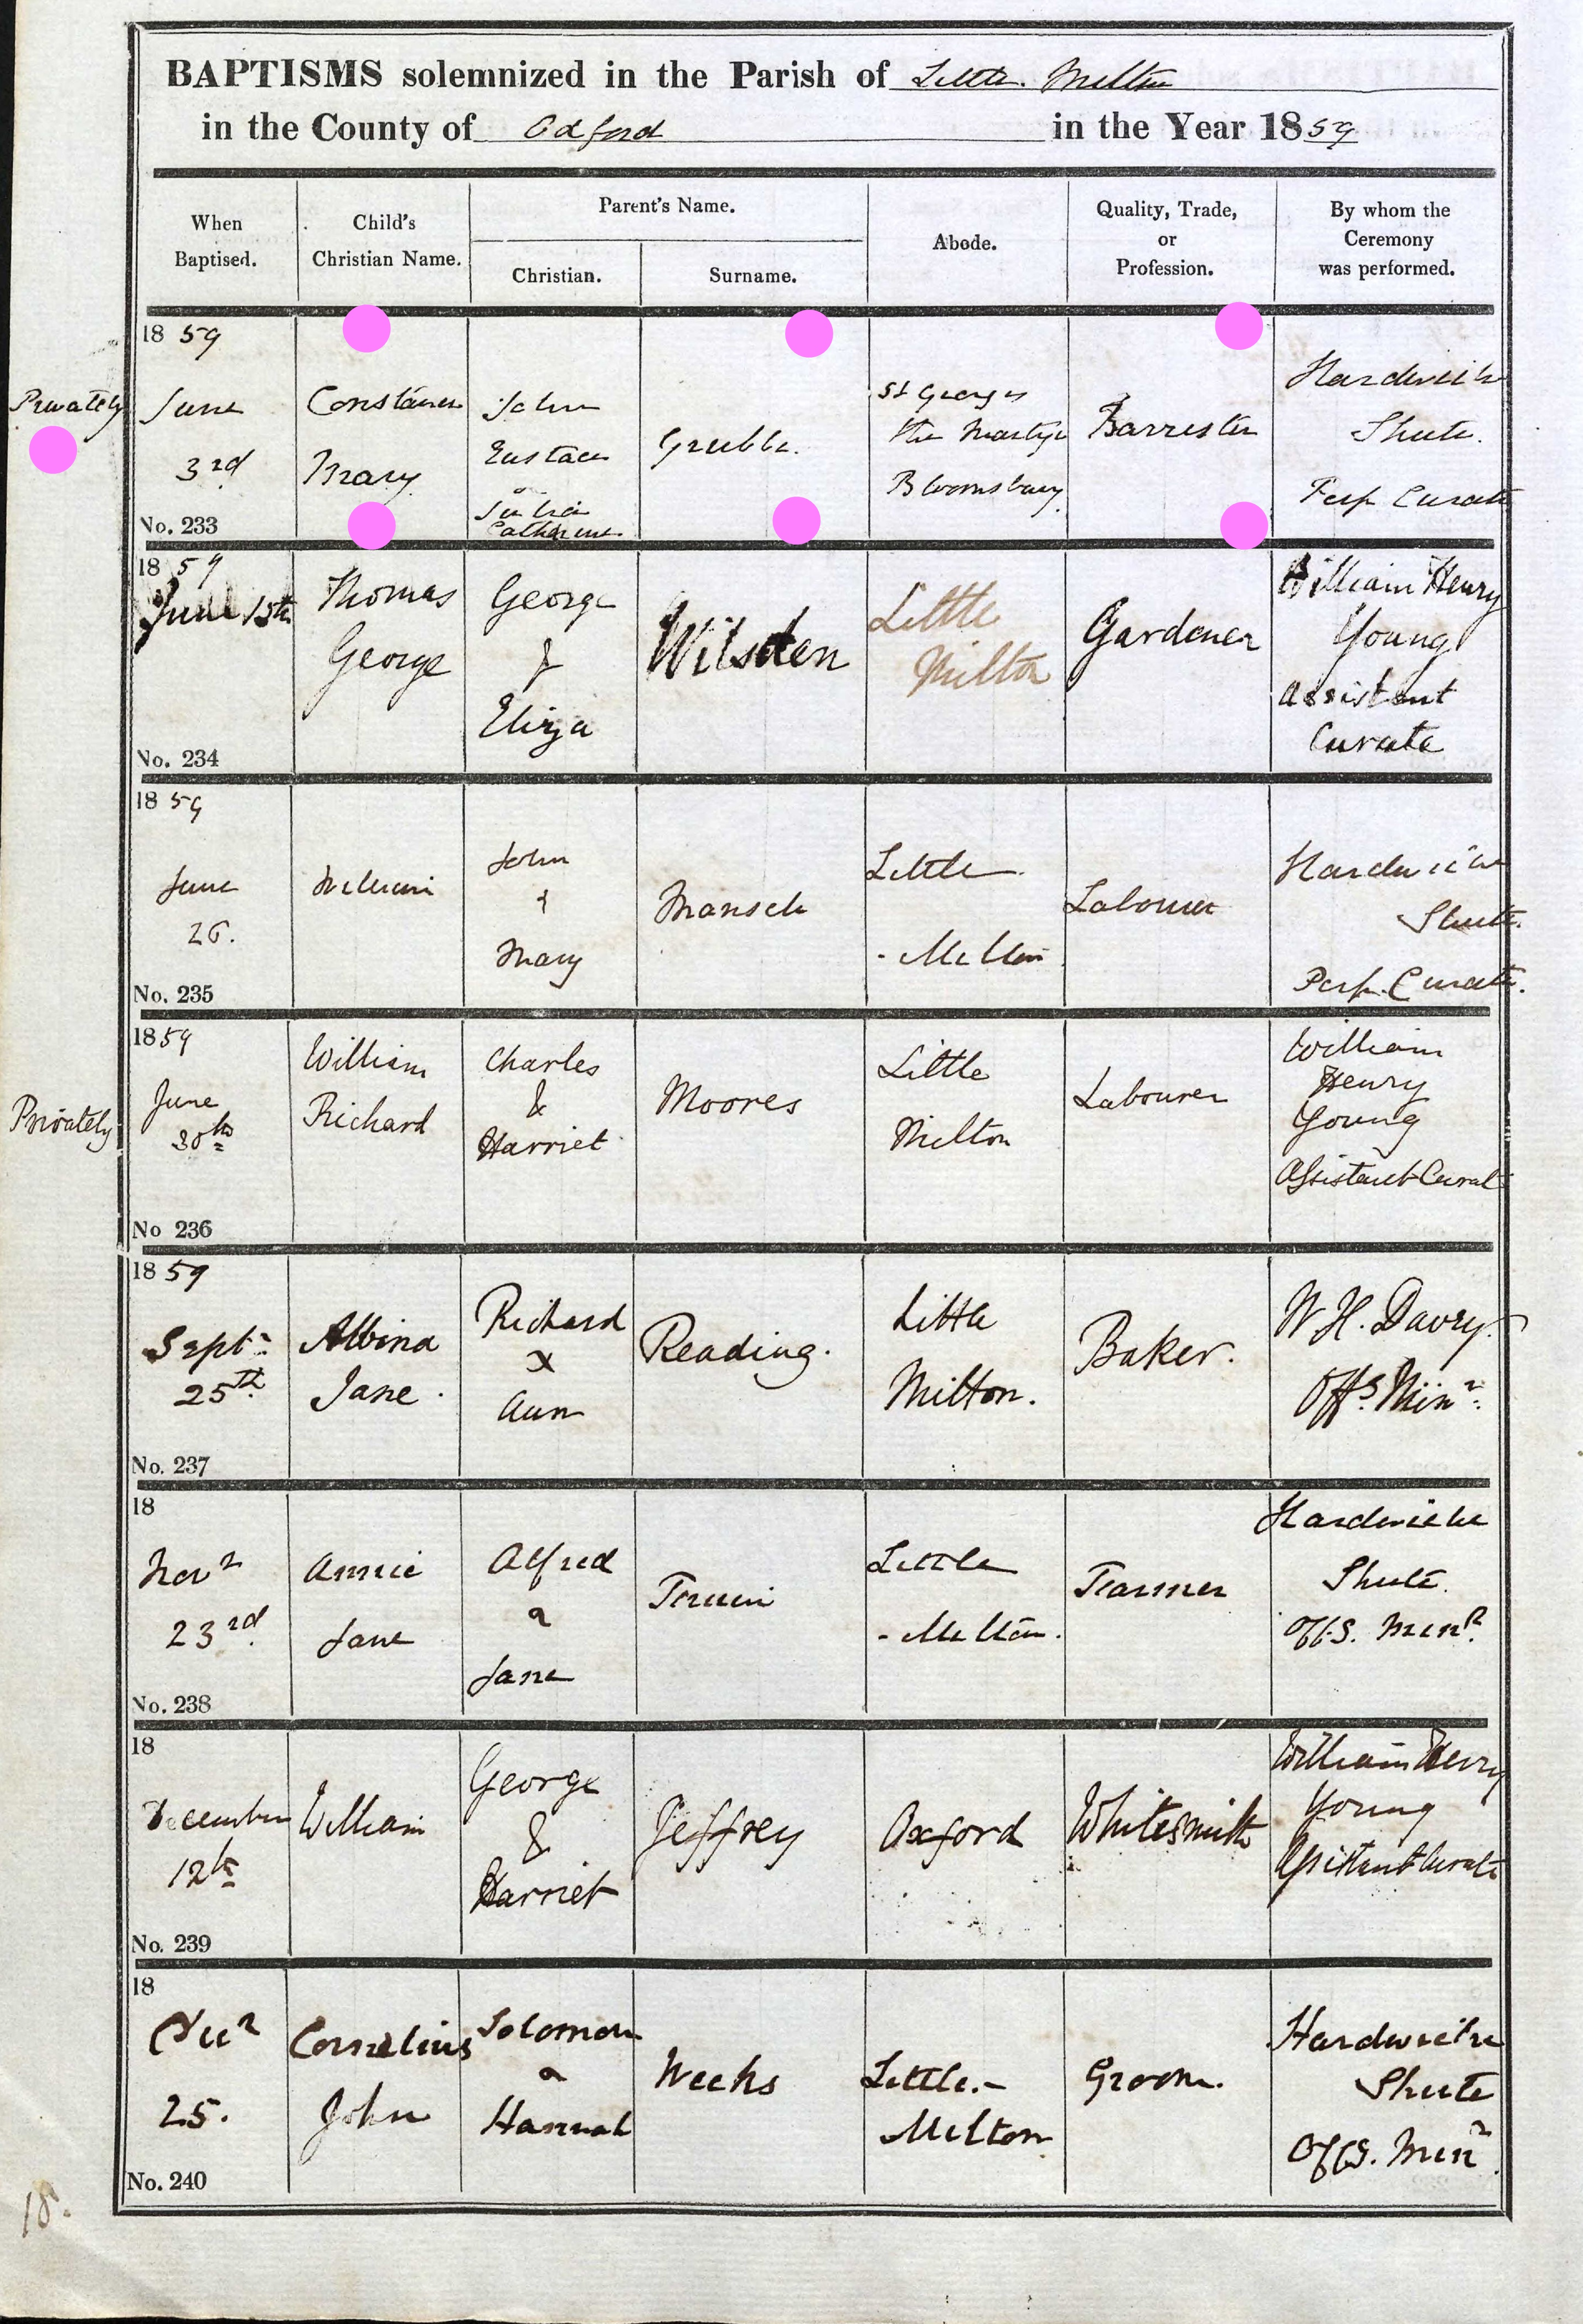 BAPTISMS solemnized in the Parish of Little Milton
in the County of Oxford in the Year 1859
When Baptised.
Child's Christian Name.
Parent's Name.
Christian.
Surname.
Abode.
Quality, Trade, or Profession.
By whom the Ceremony was performed.
Privately
1859
June
3rd
No. 233
Constance
Mary
John
Eustace
Julia
Catharine
Grubbe.
St Georges
the Martyr
Bloomsbury
Barrister
Hardwicke
Shute.
Perp Curate
1859
June 15th
No. 234
Thomas
George
George
&
Eliza
Wilsden
Little
Milton
Gardener
William Henry
Young
Assistant
Curate
1859
June
26.
No. 235
William
John
&
Mary
Little
Milton
Labourer
Hardwicke
Shute.
Perp. Curate.
Privately
1859
June
30th
No 236
William
Richard
Charles
&
Harriet
Moores
Little
Milton
Labourer
William
Henry
Young
Assistant Curate
1859
Sept.
25th
No. 237
Albina
Jane.
Richard
&
Ann
Reading.
Little
Milton.
Baker.
W H. Davey.
Offg. Minr.
18
Novr
23rd.
No. 238
Annie
Jane
Alfred
&
Jane
Little
Milton.
Farmer
Hardwicke
Shute.
Offg. Minr.
18
December
12th
No. 239
William
George
&
Harriet
Jeffrey
Oxford
Whitesmith
William Henry
Young
Assistant Curate
18
Decr
25.
No. 240
Cornelius
John
Solomon
&
Hannah
Weeks
Little
Milton
Groom.
Hardwicke
Shute
Offg. Minr
18.